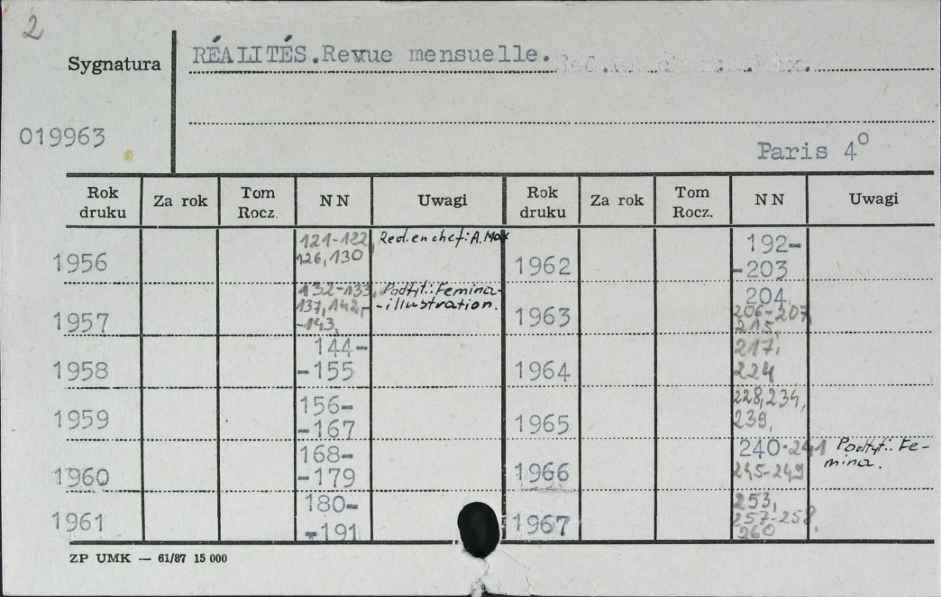 2
Sygnatura
RÉALITÉS.Revue mensuelle.
019963
Paris 4⁰
Rok druku Za rok Tom Rocz. NN Uwagi Rok druku Za rok Tom Rocz. NN Uwagi
1956 121-122, 126,130 Red.en chef: A. Max
1957 132-133, 137,142,- -143, Podtyt.: Femina- -illustration.
1958 144- -155
1959 156- -167
1960 168- -179
1961 180- -191
1962 192- -203
1963 204, 206-207, 215,
1964 217, 224
1965 228,234, 239,
1966 240-241 245-249 Podtyt.: Fe- mina.
1967 253, 257-258, 260
ZP UMK — 61/87 15 000